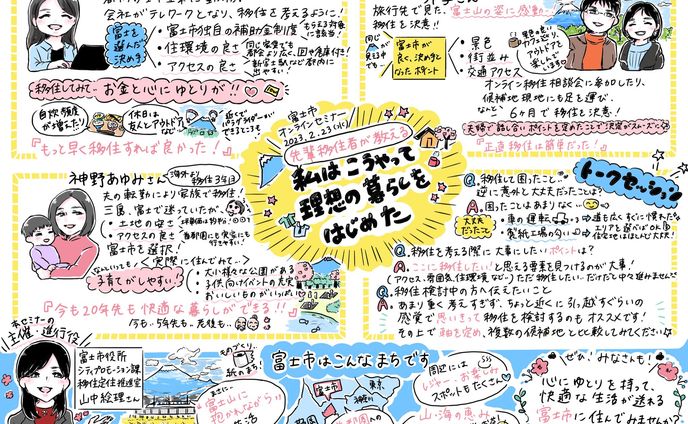 会社がテレワークとなり、移住を考えるように!
富士を選んだ決め手
・富士市独自の補助金制度
もらえる対象に該当!
・住環境の良さ
・アクセスの良さ
新富士駅など都内に出やすい!
移住してみて… お金と心にゆとりが!!
自炊頻度が増えた!!
休日は友人とアウトドアなど
近くでパラグライダーができるところも
『もっと早く移住すれば良かった!』
旅行先で見た、富士山の姿に感動…!
移住を決意!!
富士市が良く、決め手となったポイント
・景色
・街並み
・交通アクセス
オンライン移住相談会に参加したり、
候補地現地にも足を運び、
なんと
6ヵ月で移住を決意!
夫婦で話し合いポイントを定めたことで決定がスムーズに
『正直移住は簡単だった!』
富士市
オンラインセミナー
2023.2.23(木)
先輩移住者が教える
私はこうやって
理想の暮らしを
はじめた
神野あゆみさん
海外より
移住3年目
夫の転勤により家族で移住!
三島、富士で迷っていたが、
・土地の安さ
・アクセスの良さ
首都圏にも気楽に行きやすい!
富士市を選択!
なんといっても
子育てがしやすい!
<実際に住んでみて…>
・大小様々な公園がある
・子供向けイベントの充実
・おいしいものがいっぱい
『今も20年先も快適な暮らしができる!!』
今も、5年先も、老後も…
トークセッション
Q. 移住して困ったこと、
逆に意外と大丈夫だったことは?
A. 困ったことはあまりなく…
大丈夫だったこと
・車の運転
道も広くすぐに慣れた
・製紙工場の匂い
エリアを選べばOK!
Q. 移住を考える際に大事にしたいポイントは?
A. ここに移住したい!と思える要素を見つけるのが大事!
(アクセス、雰囲気、住環境など) ただ移住したい…だけだと中々進みません
Q. 移住検討中の方へ伝えたいこと
A. あまり重く考えすぎず、ちょっと近くに引っ越すぐらいの
感覚で思いきって移住を検討するのもオススメです!
その上で軸を定め、複数の候補地と比較してみてください
本セミナーの
主催・進行役
富士市役所
シティプロモーション課
移住定住推進室
山中絵理さん
富士市はこんなまちです
ものづくり
紙のまち!
まさに…
富士山に
抱かれながらの
生活
富士市
東京
神奈川
静岡
周辺には
レジャー・お出かけ
スポットもたくさん
山・海の恵み
ぜひ、みなさんも!
心にゆとりを持って、
快適な生活が送れる
富士市に住んでみませんか?